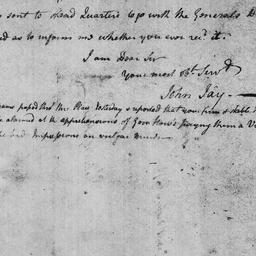 sent to Head Quarters to go with the Generals
ed as to inform me whether you ever rec.d it.
I am Dear Sir
Your most Ob.t Serv.t
John Jay.
passed thro' this Place Yesterday & reported that your
alarmed at the apprehensions of Gen.l Howe's paying them a
bad Impressions on vulgar minds